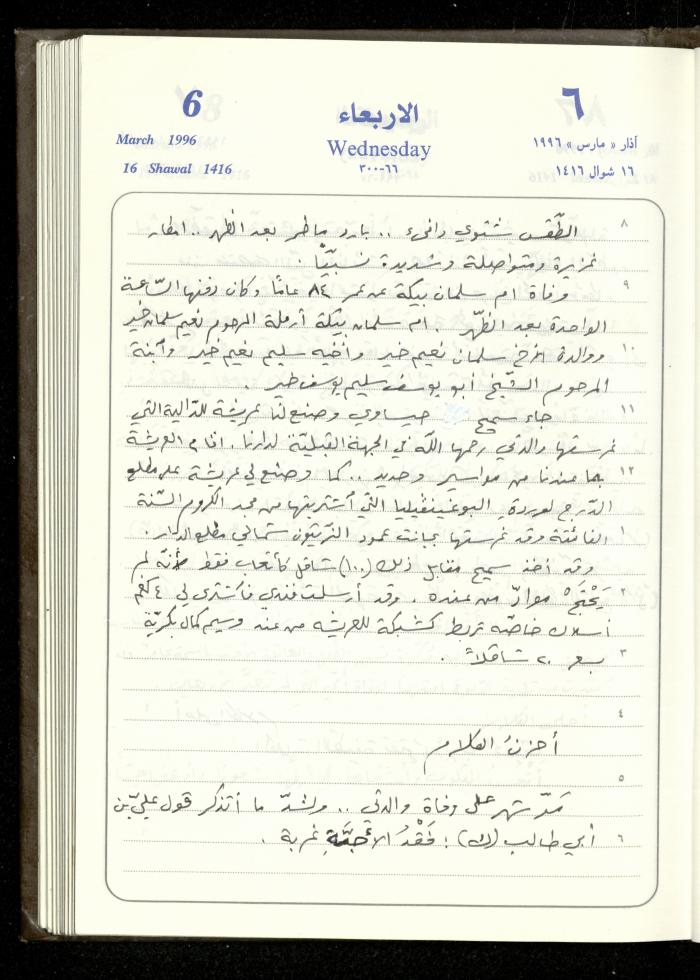 6
March 1996
16 Shawal 1416
الاربعاء
Wednesday
٦٦-٣٠٠
٦
آذار « مارس » ١٩٩٦
١٦ شوال ١٤١٦
٨
الطّقس شتوي دافىء .. بارد ماطر بعد الظهر .. امطار
غزيرة ومتواصلة وشديدة نسبيّاً .
٩
وفاة ام سلمان بيكة عن عمر ٨٤ عامًا وكان دفنها السّاعة
الواحدة بعد الظّهر . ام سلمان بيكة أرملة المرحوم نعيم سلمان خير
١٠
ووالدة سلمان نعيم خير وأخيه سليم نعيم خير وآبنة
المرحوم الشّيخ أبو يوسف سليم يوسف خير .
١١
جاء سميح حيساوي وصنع لنا عريشة للدّالية التي
غرستها والدتي رحمها اللّه في الجهة القبليّة لدارنا . اقام العريشة
١٢
بما عندنا من مواسير وحديد .. كما وصنع لي عريشة على مطلع
الدّرج لوردة البوغينفيليا التي أشتريتها من مجد الكروم السّنة
١
الفائتة وقد غرستها بجانب عمود الزّيتون شمالي مطلع الدار .
وقد أخذ سميح مقابل ذلك (١٠٠) شاقل كأتعاب فقط لأنّه لم
٢
يَحْتَجْ موادّ من عنده . وقد أرسلت فندي فأشترى لي ٤ كغم
أسلاك خاصّة تربط كشبكة للعريشة من عند وسيم كمال بكريّة
٣
بسعر ٢٠ شاقلاً .
٤
أحزنُ الكلام
٥
مَرّ شهر على وفاة والدتي .. ولشدّ ما أتذكر قول عليّ بن
٦
أبي طالب (ك) : فَقْدُ الأحِبَّةِ غربة .